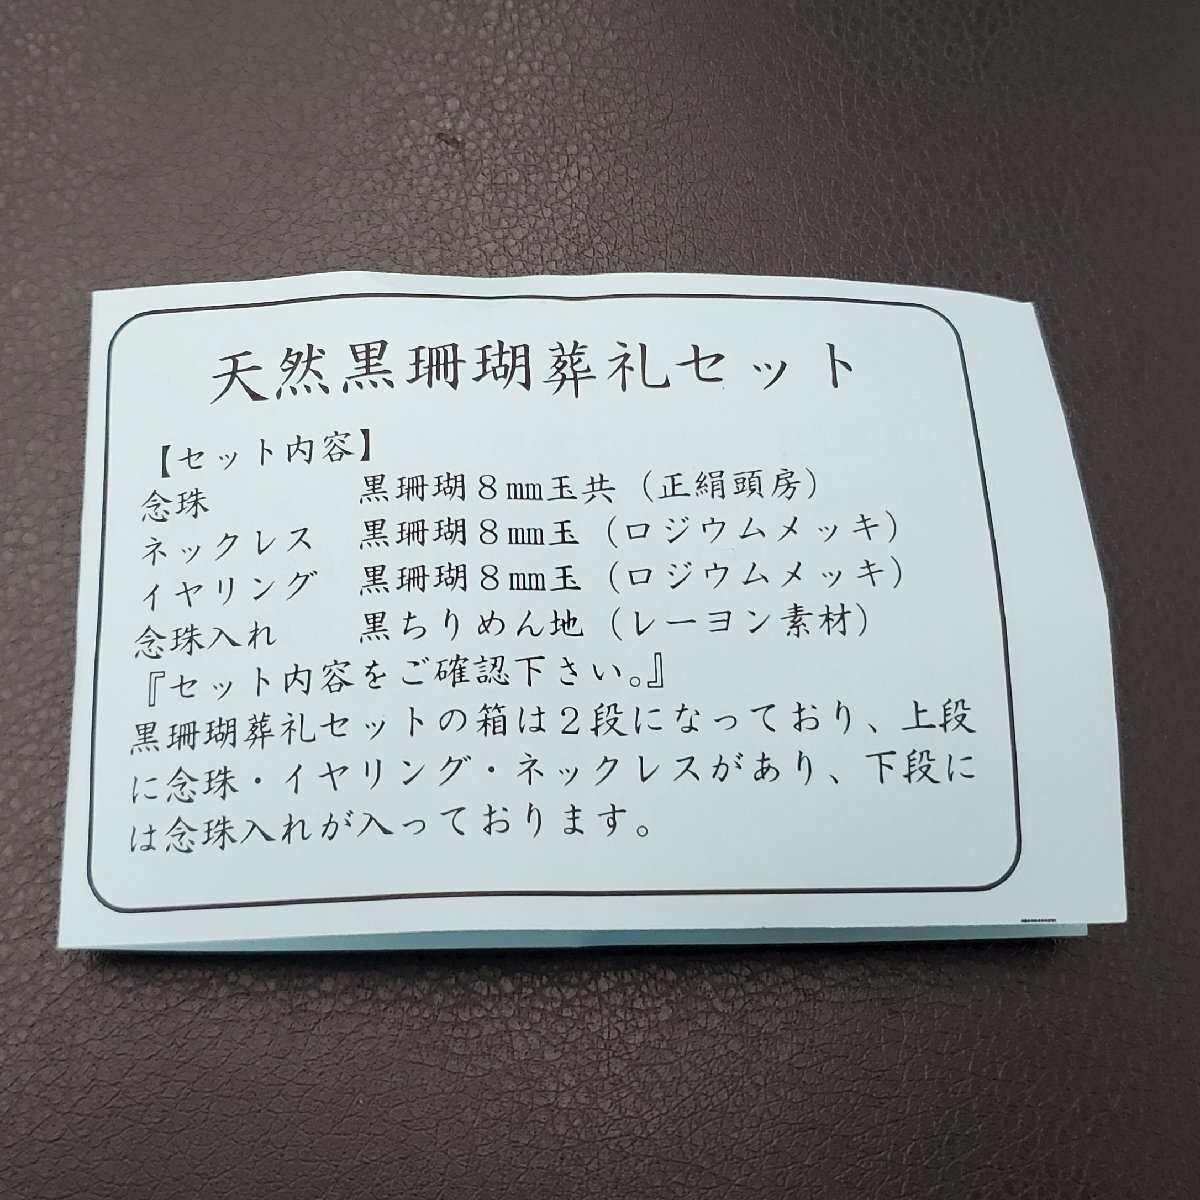 天然黒珊瑚葬礼セット
【セット内容】
念珠 黒珊瑚８㎜玉共（正絹頭房）
ネックレス 黒珊瑚８㎜玉（ロジウムメッキ）
イヤリング 黒珊瑚８㎜玉（ロジウムメッキ）
念珠入れ 黒ちりめん地（レーヨン素材）
『セット内容をご確認下さい。』
黒珊瑚葬礼セットの箱は２段になっており、上段
に念珠・イヤリング・ネックレスがあり、下段に
は念珠入れが入っております。